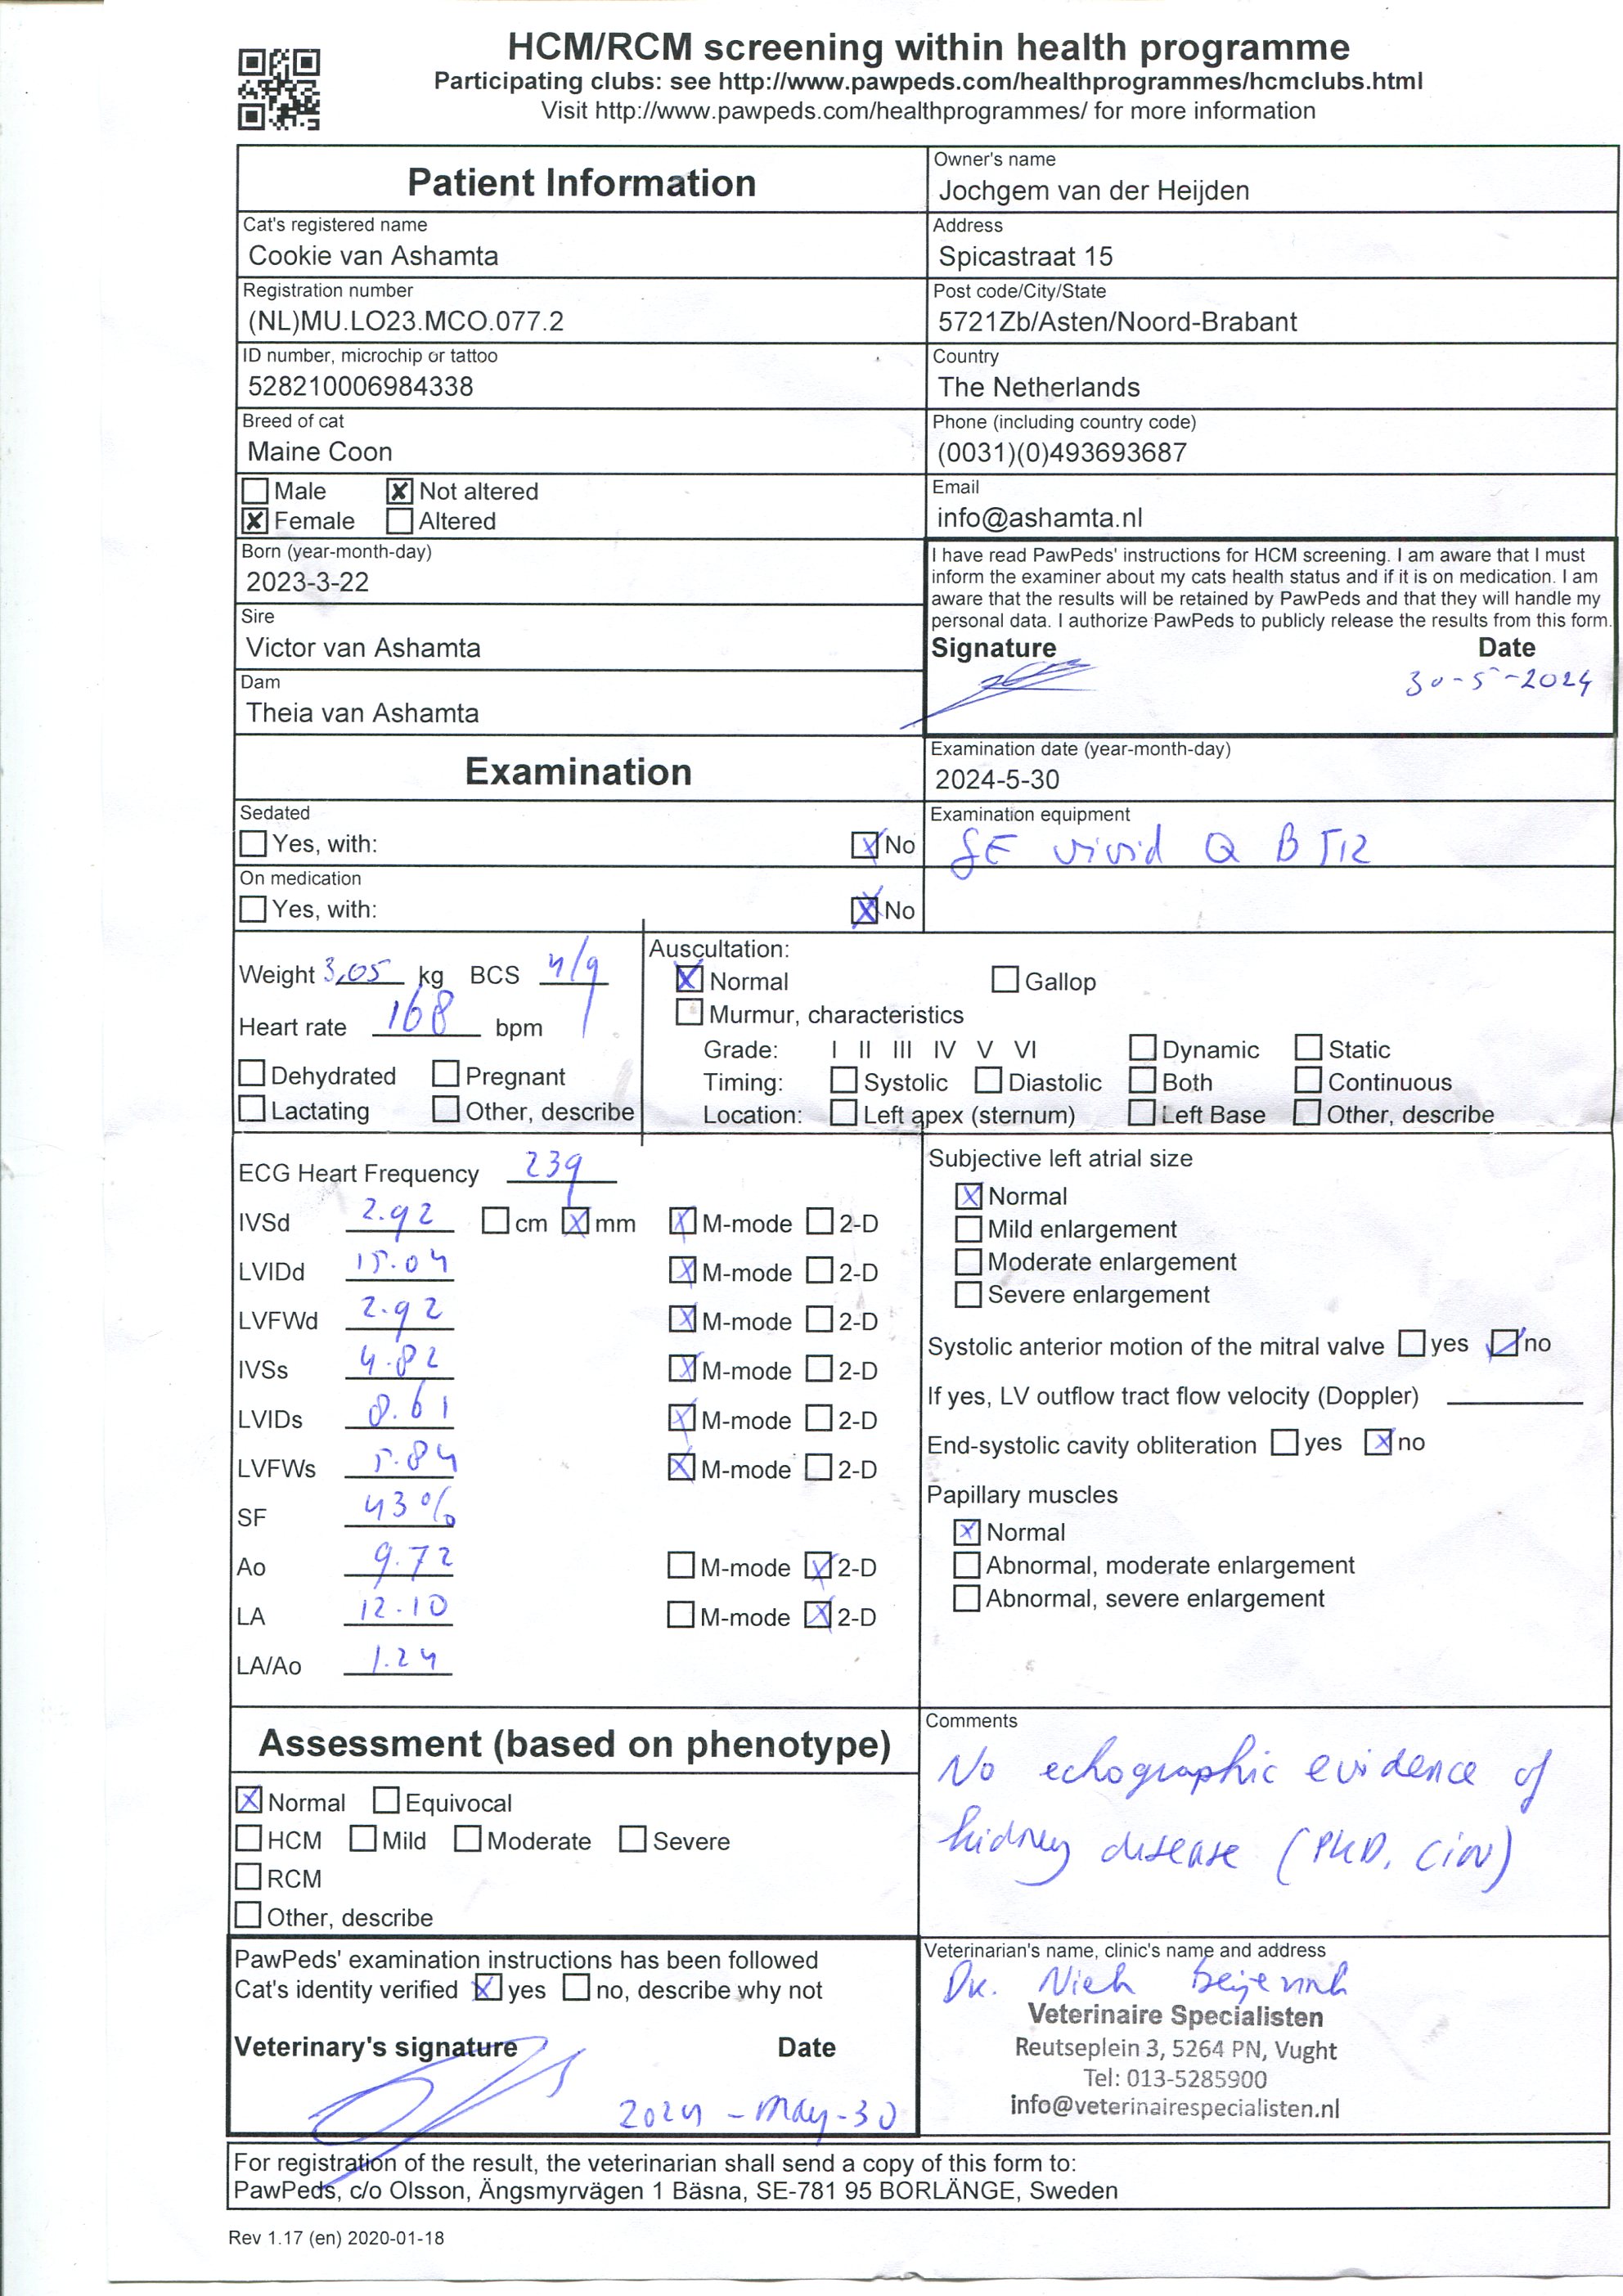 HCM/RCM screening within health programme
Participating clubs: see http://www.pawpeds.com/healthprogrammes/hcmclubs.html
Visit http://www.pawpeds.com/healthprogrammes/ for more information
Patient Information
Owner's name
Jochgem van der Heijden
Cat's registered name
Cookie van Ashamta
Address
Spicastraat 15
Registration number
(NL)MU.LO23.MCO.077.2
Post code/City/State
5721Zb/Asten/Noord-Brabant
ID number, microchip or tattoo
528210006984338
Country
The Netherlands
Breed of cat
Maine Coon
Phone (including country code)
(0031)(0)493693687
Male Not altered
Female Altered
Email
info@ashamta.nl
Born (year-month-day)
2023-3-22
Sire
Victor van Ashamta
Dam
Theia van Ashamta
I have read PawPeds' instructions for HCM screening. I am aware that I must
inform the examiner about my cats health status and if it is on medication. I am
aware that the results will be retained by PawPeds and that they will handle my
personal data. I authorize PawPeds to publicly release the results from this form.
Signature Date
30-5-2024
Examination
Examination date (year-month-day)
2024-5-30
Sedated
Yes, with: No
Examination equipment
GE vivid Q BT12
On medication
Yes, with: No
Weight 3,05 kg BCS 4/9
Heart rate 168 bpm
Dehydrated Pregnant
Lactating Other, describe
Auscultation:
Normal Gallop
Murmur, characteristics
Grade: I II III IV V VI Dynamic Static
Timing: Systolic Diastolic Both Continuous
Location: Left apex (sternum) Left Base Other, describe
ECG Heart Frequency 239
IVSd 2.92 cm mm M-mode 2-D
LVIDd 15.04 M-mode 2-D
LVFWd 2.92 M-mode 2-D
IVSs 4.82 M-mode 2-D
LVIDs 8.61 M-mode 2-D
LVFWs 5.84 M-mode 2-D
SF 43%
Ao 9.72 M-mode 2-D
LA 12.10 M-mode 2-D
LA/Ao 1.24
Subjective left atrial size
Normal
Mild enlargement
Moderate enlargement
Severe enlargement
Systolic anterior motion of the mitral valve yes no
If yes, LV outflow tract flow velocity (Doppler)
End-systolic cavity obliteration yes no
Papillary muscles
Normal
Abnormal, moderate enlargement
Abnormal, severe enlargement
Assessment (based on phenotype)
Normal Equivocal
HCM Mild Moderate Severe
RCM
Other, describe
Comments
No echographic evidence of
kidney disease (PKD, CIN)
PawPeds' examination instructions has been followed
Cat's identity verified yes no, describe why not
Veterinary's signature Date
2024-May-30
Veterinarian's name, clinic's name and address
Dr. Niek Beijerink
Veterinaire Specialisten
Reutseplein 3, 5264 PN, Vught
Tel: 013-5285900
info@veterinairespecialisten.nl
For registration of the result, the veterinarian shall send a copy of this form to:
PawPeds, c/o Olsson, Ängsmyrvägen 1 Bäsna, SE-781 95 BORLÄNGE, Sweden
Rev 1.17 (en) 2020-01-18